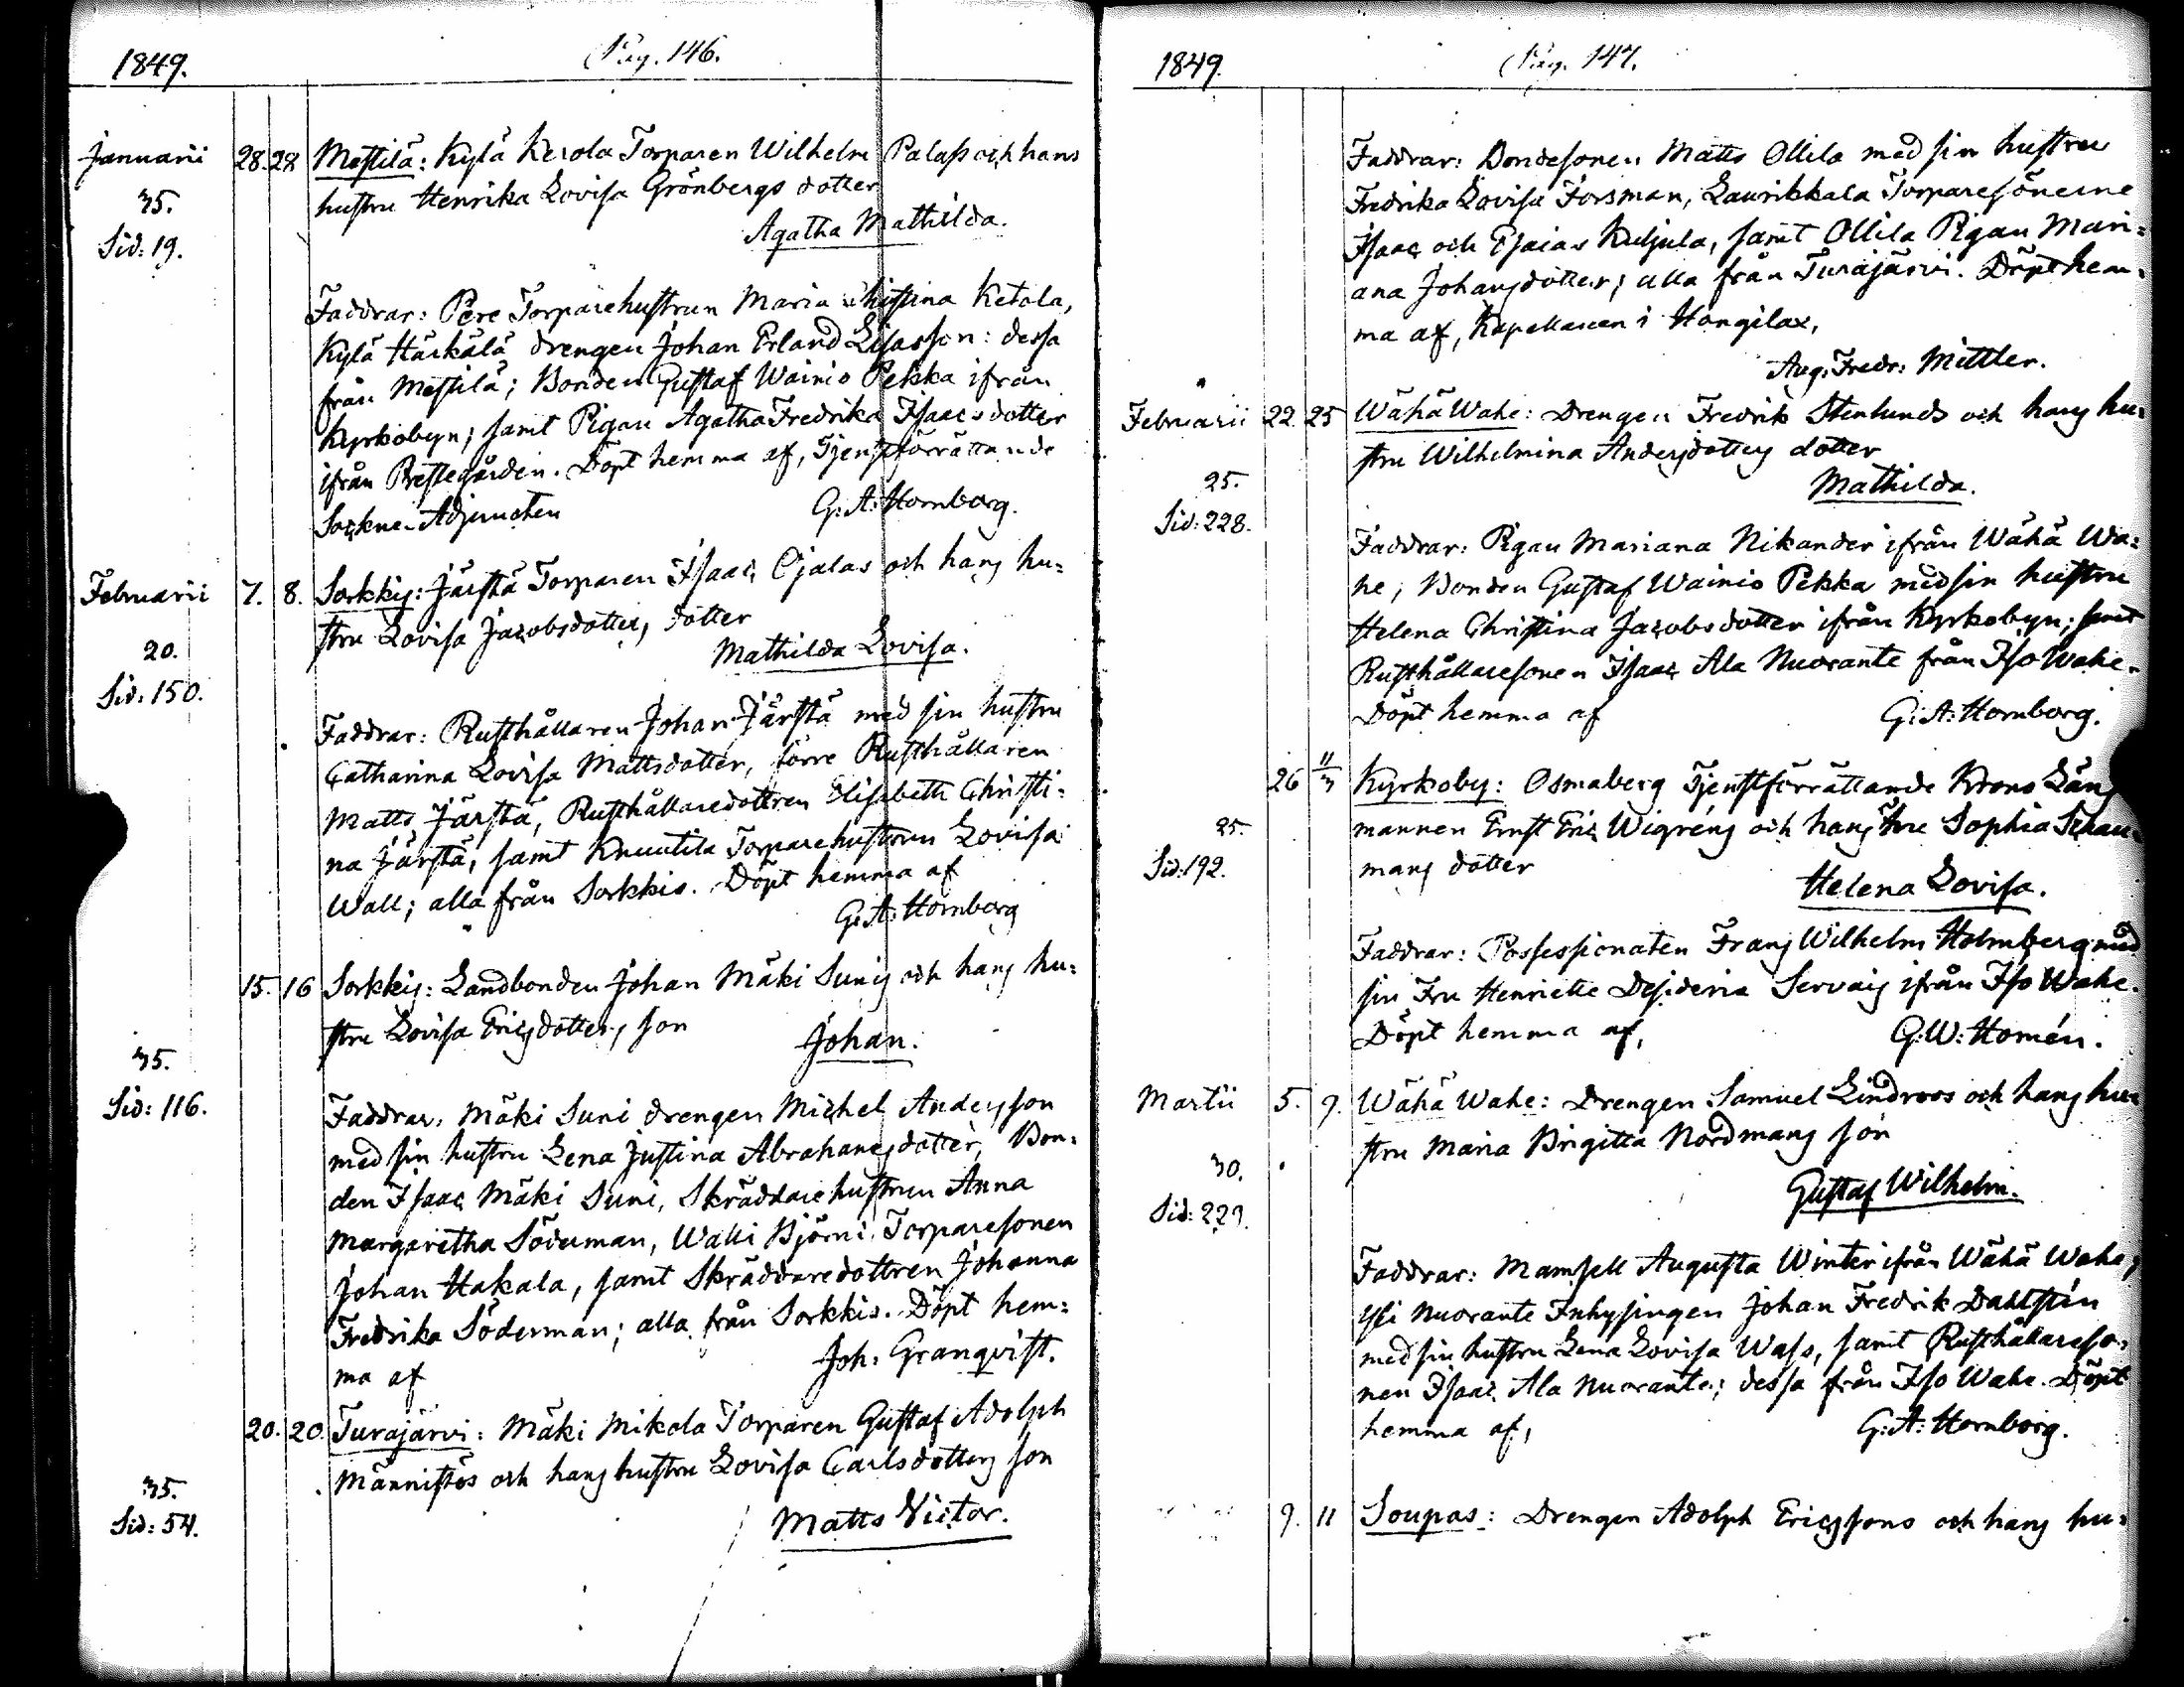 1849. Pag. 146.
Januarii 28. 28 Mestilä: Kylä Kerola Torparen Wilhelm Palass och hans
35. hustru Henrika Lovisa Grönbergs dotter
Sid: 19. Agatha Mathilda.
Faddrar: Pere Torparehustrun Maria Christina Ketola,
Kylä Härkälä drengen Johan Erland Lisasson: dessa
från Mestilä; Bonden Gustaf Wainio Pekka ifrån
Kyrkobyn; samt Pigan Agatha Fredrika Isaacsdotter
ifrån Prestegården. Döpt hemma af, Tjenstförrättande
Sockne-Adjuncten G: A: Hornborg.
Februarii 7. 8. Sorkkis: Järstä Torparen Isaac Ojalas och hans hu=
20. stru Lovisa Jacobsdotters dotter
Sid: 150. Mathilda Lovisa.
Faddrar: Rusthållaren Johan Järstä med sin hustru
Catharina Lovisa Mattsdotter, förre Rusthållaren
Matts Järstä, Rusthållaredottren Elisabeth Christi=
na Järstä, samt Knuutila Torparehustrun Lovisa
Wall; alla från Sorkkis. Döpt hemma af
G: A: Hornborg
15. 16 Sorkkis: Landbonden Johan Mäki Sunis och hans hu=
stru Lovisa Ericsdotters son Johan.
35.
Sid: 116. Faddrar: Mäki Suni drengen Michel Andersson
med sin hustru Lena Justina Abrahamsdotter, Bon=
den Isaac Mäki Suni, Skräddarehustrun Anna
Margaretha Söderman, Walli Björni Torparesonen
Johan Hakala, samt Skräddaredottren Johanna
Fredrika Söderman; alla från Sorkkis. Döpt hem=
ma af Joh: Granqvist.
20. 20. Turajärvi: Mäki Mikola Torparen Gustaf Adolph
35. Männistös och hans hustru Lovisa Carlsdotters son
Sid: 54. Matts Victor.
1849. Pag. 147.
Faddrar: Bondesonen Matts Ollila med sin hustru
Fredrika Lovisa Forsman, Laurikkala Torparesönerne
Isaac och Esaias Kuljula, samt Ollila Pigan Mari=
ana Johansdotter; alla från Turajärvi. Döpt hem=
ma af, Kapellanen i Hongilax,
Aug: Fredr: Mittler.
Februarii 22. 25 Wähä Wahe: Drengen Fredrik Stenlunds och hans hu=
stru Wilhelmina Andersdotters dotter
25. Mathilda.
Sid: 228. Faddrar: Pigan Mariana Nikander ifrån Wähä Wa=
he, Bonden Gustaf Wainio Pekka med sin hustru
Helena Christina Jacobsdotter ifrån Kyrkobyn; samt
Rusthållaresonen Isaac Ala Nuorante från Iso Wahe.
Döpt hemma af G: A: Hornborg.
26 11/3 Kyrkoby: Osmaberg Tjenstförrättande Krono Läns
25. mannen Ernst Eric Wigréns och hans Fru Sophia Schau
Sid: 192. mans dotter Helena Lovisa.
Faddrar: Possessionaten Frans Wilhelm Holmberg med
sin Fru Henriette Desideria Servais ifrån Iso Wahe.
Döpt hemma af, G: W: Homén.
Martii 5. 9. Wähä Wahe: Drengen Samuel Lindroos och hans hu=
stru Maria Brigitta Nordmans son
30. Gustaf Wilhelm.
Sid: 229.
Faddrar: Mamsell Augusta Winter ifrån Wähä Wahe;
Yli Nuorante Inhysingen Johan Fredrik Dahlstén
med sin hustru Lena Lovisa Wass, samt Rusthållareso=
nen Isaac Ala Nuorante; dessa från Iso Wahe. Döpt
hemma af, G: A: Hornborg.
9. 11 Soupas: Drengen Adolph Ericssons och hans hu=